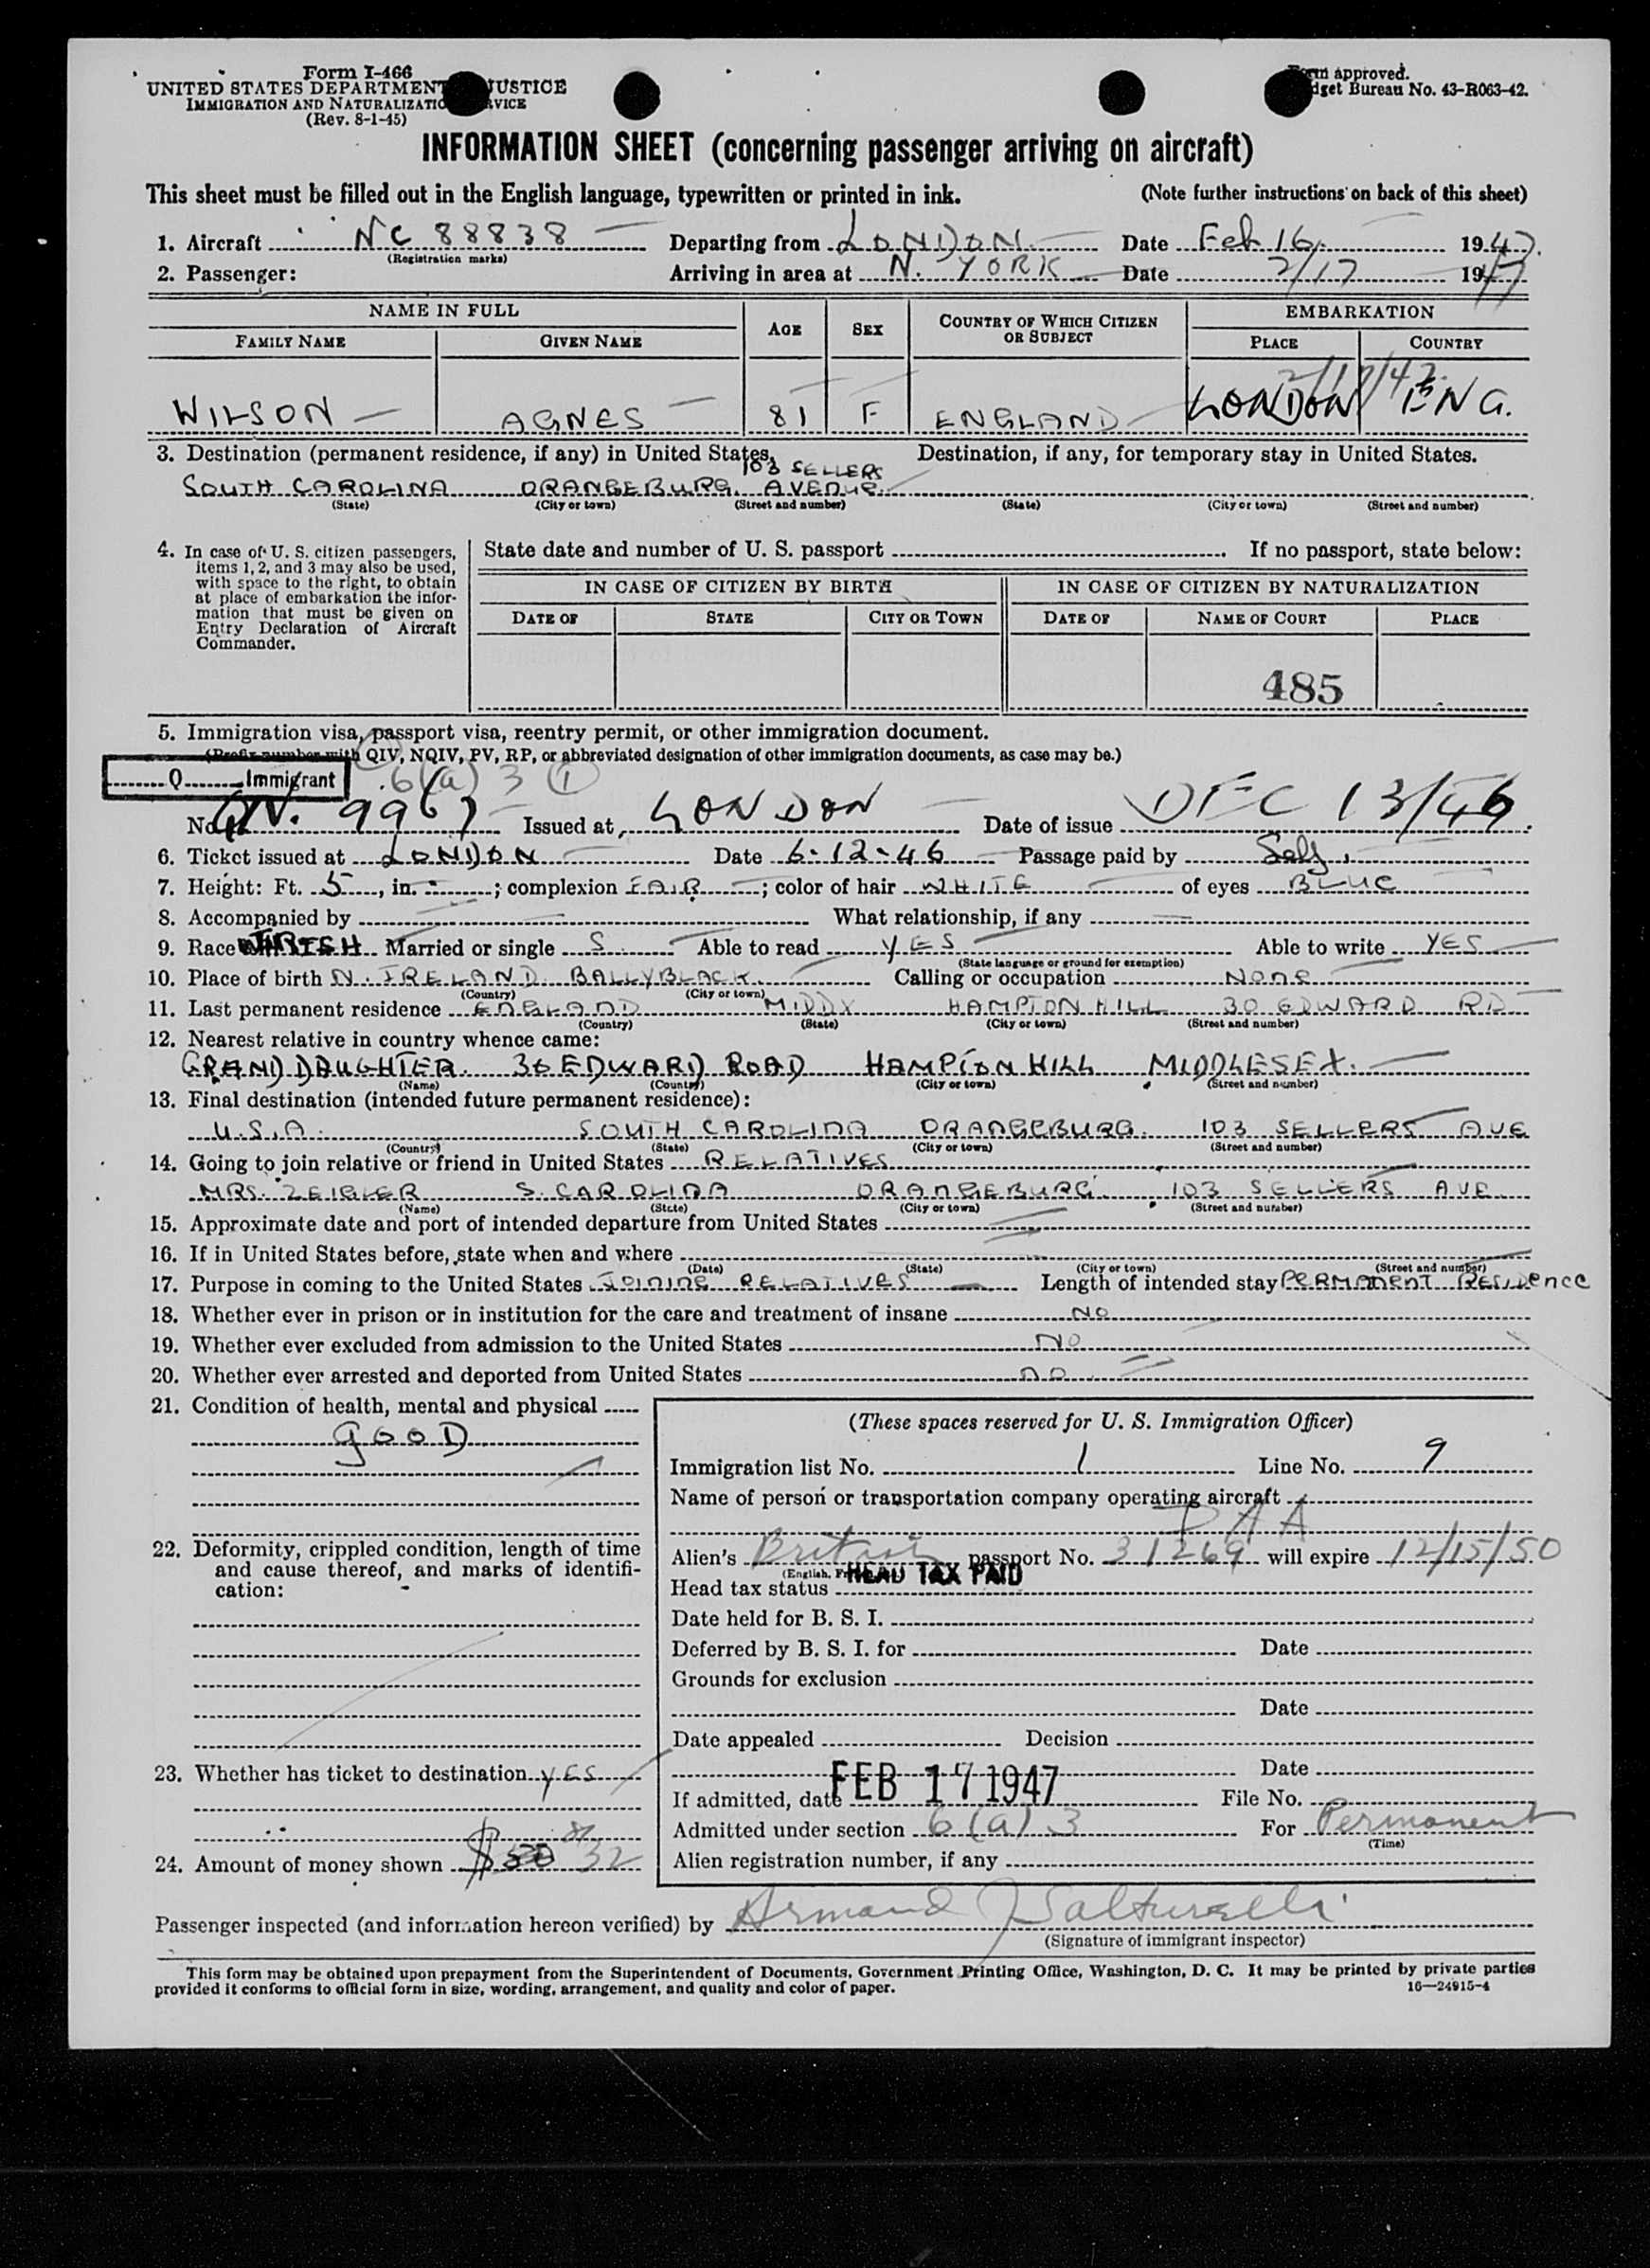 Form I-466
UNITED STATES DEPARTMENT JUSTICE
IMMIGRATION AND NATURALIZATIO VICE
(Rev. 8-1-45)
approved.
dget Bureau No. 43-R063-42.
INFORMATION SHEET (concerning passenger arriving on aircraft)
This sheet must be filled out in the English language, typewritten or printed in ink. (Note further instructions on back of this sheet)
1. Aircraft NC 88838 Departing from LONDON Date Feb 16. 1947.
(Registration marks)
2. Passenger: Arriving in area at N. YORK Date 2/17 1947
NAME IN FULL AGE SEX COUNTRY OF WHICH CITIZEN OR SUBJECT EMBARKATION
FAMILY NAME GIVEN NAME PLACE COUNTRY
WILSON AGNES 81 F ENGLAND LONDON ENG.
3. Destination (permanent residence, if any) in United States. Destination, if any, for temporary stay in United States.
103 SELLERS
SOUTH CAROLINA ORANGEBURG. AVENUE.
(State) (City or town) (Street and number) (State) (City or town) (Street and number)
4. In case of U. S. citizen passengers, items 1, 2, and 3 may also be used, with space to the right, to obtain at place of embarkation the information that must be given on Entry Declaration of Aircraft Commander.
State date and number of U. S. passport If no passport, state below:
IN CASE OF CITIZEN BY BIRTH IN CASE OF CITIZEN BY NATURALIZATION
DATE OF STATE CITY OR TOWN DATE OF NAME OF COURT PLACE
485
5. Immigration visa, passport visa, reentry permit, or other immigration document.
(Prefix number with QIV, NQIV, PV, RP, or abbreviated designation of other immigration documents, as case may be.)
Q Immigrant 6(a) 3 1
No. 9967 Issued at LONDON Date of issue DEC 13/46
6. Ticket issued at LONDON Date 6-12-46 Passage paid by Self.
7. Height: Ft. 5, in. -; complexion FAIR; color of hair WHITE of eyes BLUE
8. Accompanied by What relationship, if any
9. Race IRISH Married or single S. Able to read YES Able to write YES
(State language or ground for exemption)
10. Place of birth N. IRELAND BALLYBLACK. Calling or occupation None
(Country) (City or town)
11. Last permanent residence ENGLAND MIDDX HAMPTON HILL 30 EDWARD RD
(Country) (State) (City or town) (Street and number)
12. Nearest relative in country whence came:
GRAND DAUGHTER. 30 EDWARD ROAD HAMPTON HILL MIDDLESEX.
(Name) (Country) (City or town) (Street and number)
13. Final destination (intended future permanent residence):
U.S.A. SOUTH CAROLINA ORANGEBURG. 103 SELLERS AVE
(Country) (State) (City or town) (Street and number)
14. Going to join relative or friend in United States RELATIVES
MRS. ZEIGLER S. CAROLINA ORANGEBURG. 103 SELLERS AVE.
(Name) (State) (City or town) (Street and number)
15. Approximate date and port of intended departure from United States
16. If in United States before, state when and where
(Date) (State) (City or town) (Street and number)
17. Purpose in coming to the United States JOINING RELATIVES Length of intended stay PERMANENT RESIDENCE
18. Whether ever in prison or in institution for the care and treatment of insane NO
19. Whether ever excluded from admission to the United States NO
20. Whether ever arrested and deported from United States NO
21. Condition of health, mental and physical
GOOD
22. Deformity, crippled condition, length of time and cause thereof, and marks of identification: -
23. Whether has ticket to destination YES
24. Amount of money shown $ 30 32
(These spaces reserved for U. S. Immigration Officer)
Immigration list No. 1 Line No. 9
Name of person or transportation company operating aircraft
PAA
Alien's British passport No. 31269 will expire 12/15/50
Head tax status HEAD TAX PAID
Date held for B. S. I.
Deferred by B. S. I. for Date
Grounds for exclusion
Date
Date appealed Decision
Date
If admitted, date FEB 17 1947 File No.
Admitted under section 6(a)3 For Permanent
(Time)
Alien registration number, if any
Passenger inspected (and information hereon verified) by Armand J Salturelli
(Signature of immigrant inspector)
This form may be obtained upon prepayment from the Superintendent of Documents, Government Printing Office, Washington, D. C. It may be printed by private parties
provided it conforms to official form in size, wording, arrangement, and quality and color of paper. 16—24915-4